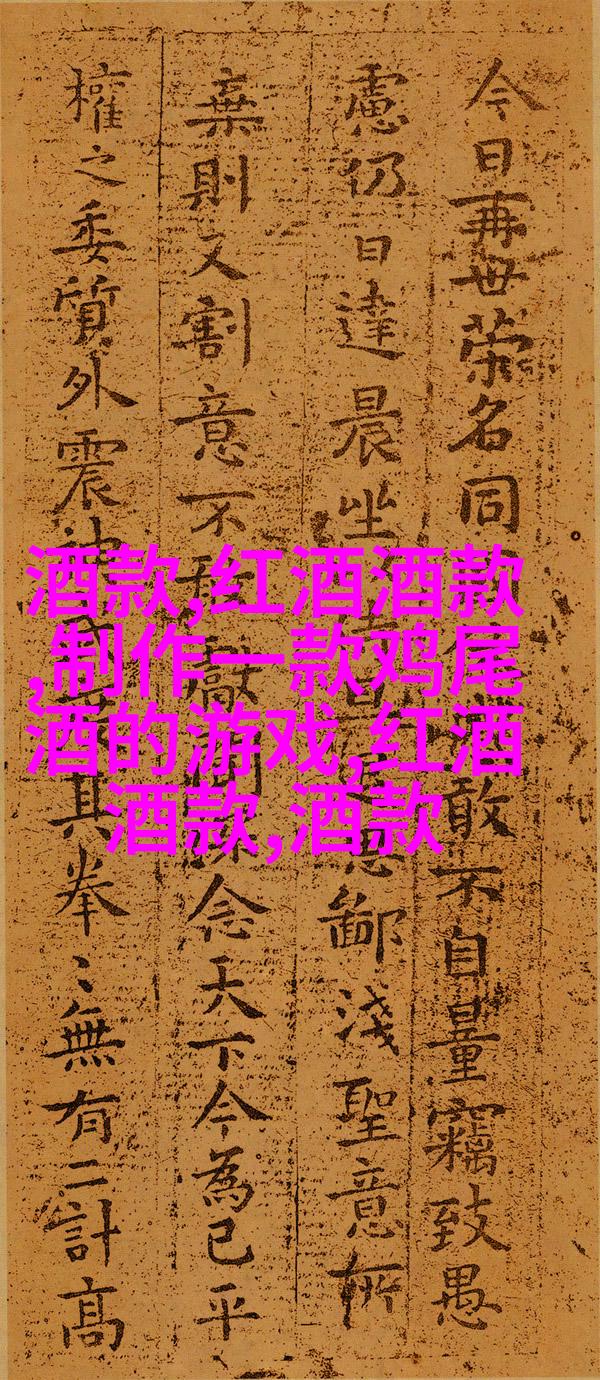 今日再世榮名同敢不自量竊致愚
慮仍日達晨坐思鄙淺聖意所
棄則又割意不獻聞深念天下今為已平
權之委質外震神其拳〻無有二計高
酒款,红酒酒款
,制作一款鸡尾
酒的游戏,红酒
酒款,酒款